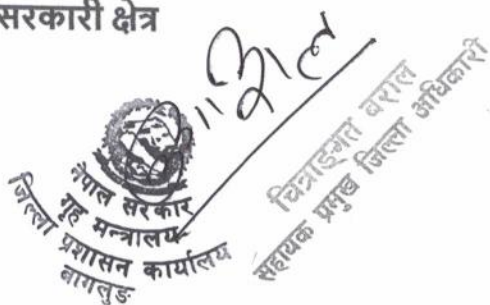 सरकारी क्षेत्र
नेपाल सरकार
गृह मन्त्रालय
जिल्ला प्रशासन कार्यालय
बागलुङ
चित्राङ्गत बराल
सहायक प्रमुख जिल्ला अधिकारी